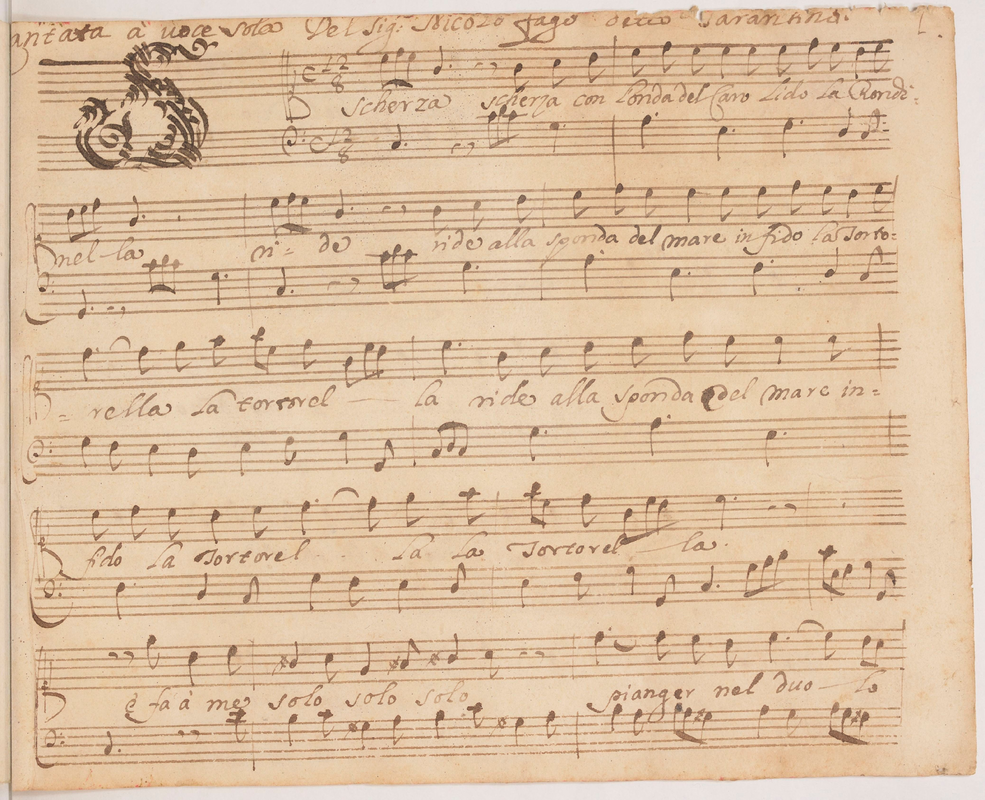 antata à voce sola Del Sig: Nicolo fago detto Tarantino. 1.
Scherza scherza con l'onda del Caro Lido La Rondi-
nel-la ri- de ride alla sponda del mare infido la Torto-
-rella La tortorel la ride alla sponda del mare in-
fido La Tortorel La La Tortorel la.
e fa à me solo solo solo pianger nel duo-lo